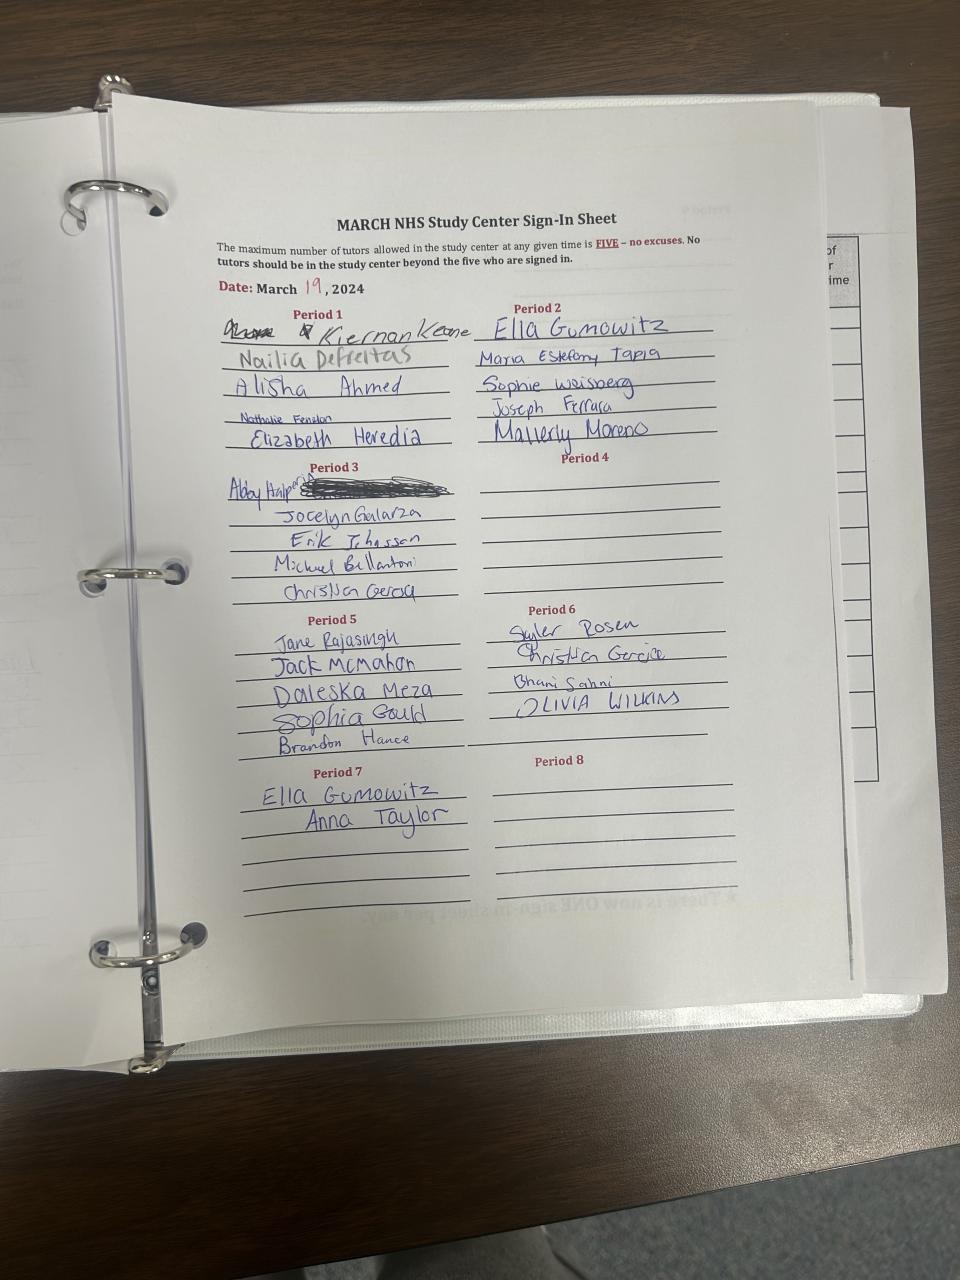 MARCH NHS Study Center Sign-In Sheet
The maximum number of tutors allowed in the study center at any given time is FIVE – no excuses. No
tutors should be in the study center beyond the five who are signed in.
Date: March 19, 2024
Period 1
Kiernan Keane
Nailia Defreitas
Alisha Ahmed
Nathalie Fenelon
Elizabeth Heredia
Period 2
Ella Gumowitz
Maria Estefany Tapia
Sophie Weisberg
Joseph Ferrara
Mallerly Moreno
Period 3
Abby Halperin
Jocelyn Galarza
Erik
Michael Bellantoni
Christian
Period 4
Period 5
Jane Rajasingh
Jack McMahon
Daleska Meza
Sophia Gould
Brandon Hance
Period 6
Skyler Rosen
Christian
Bhani Sahni
OLIVIA WILKINS
Period 7
Ella Gumowitz
Anna Taylor
Period 8
of
r
ime